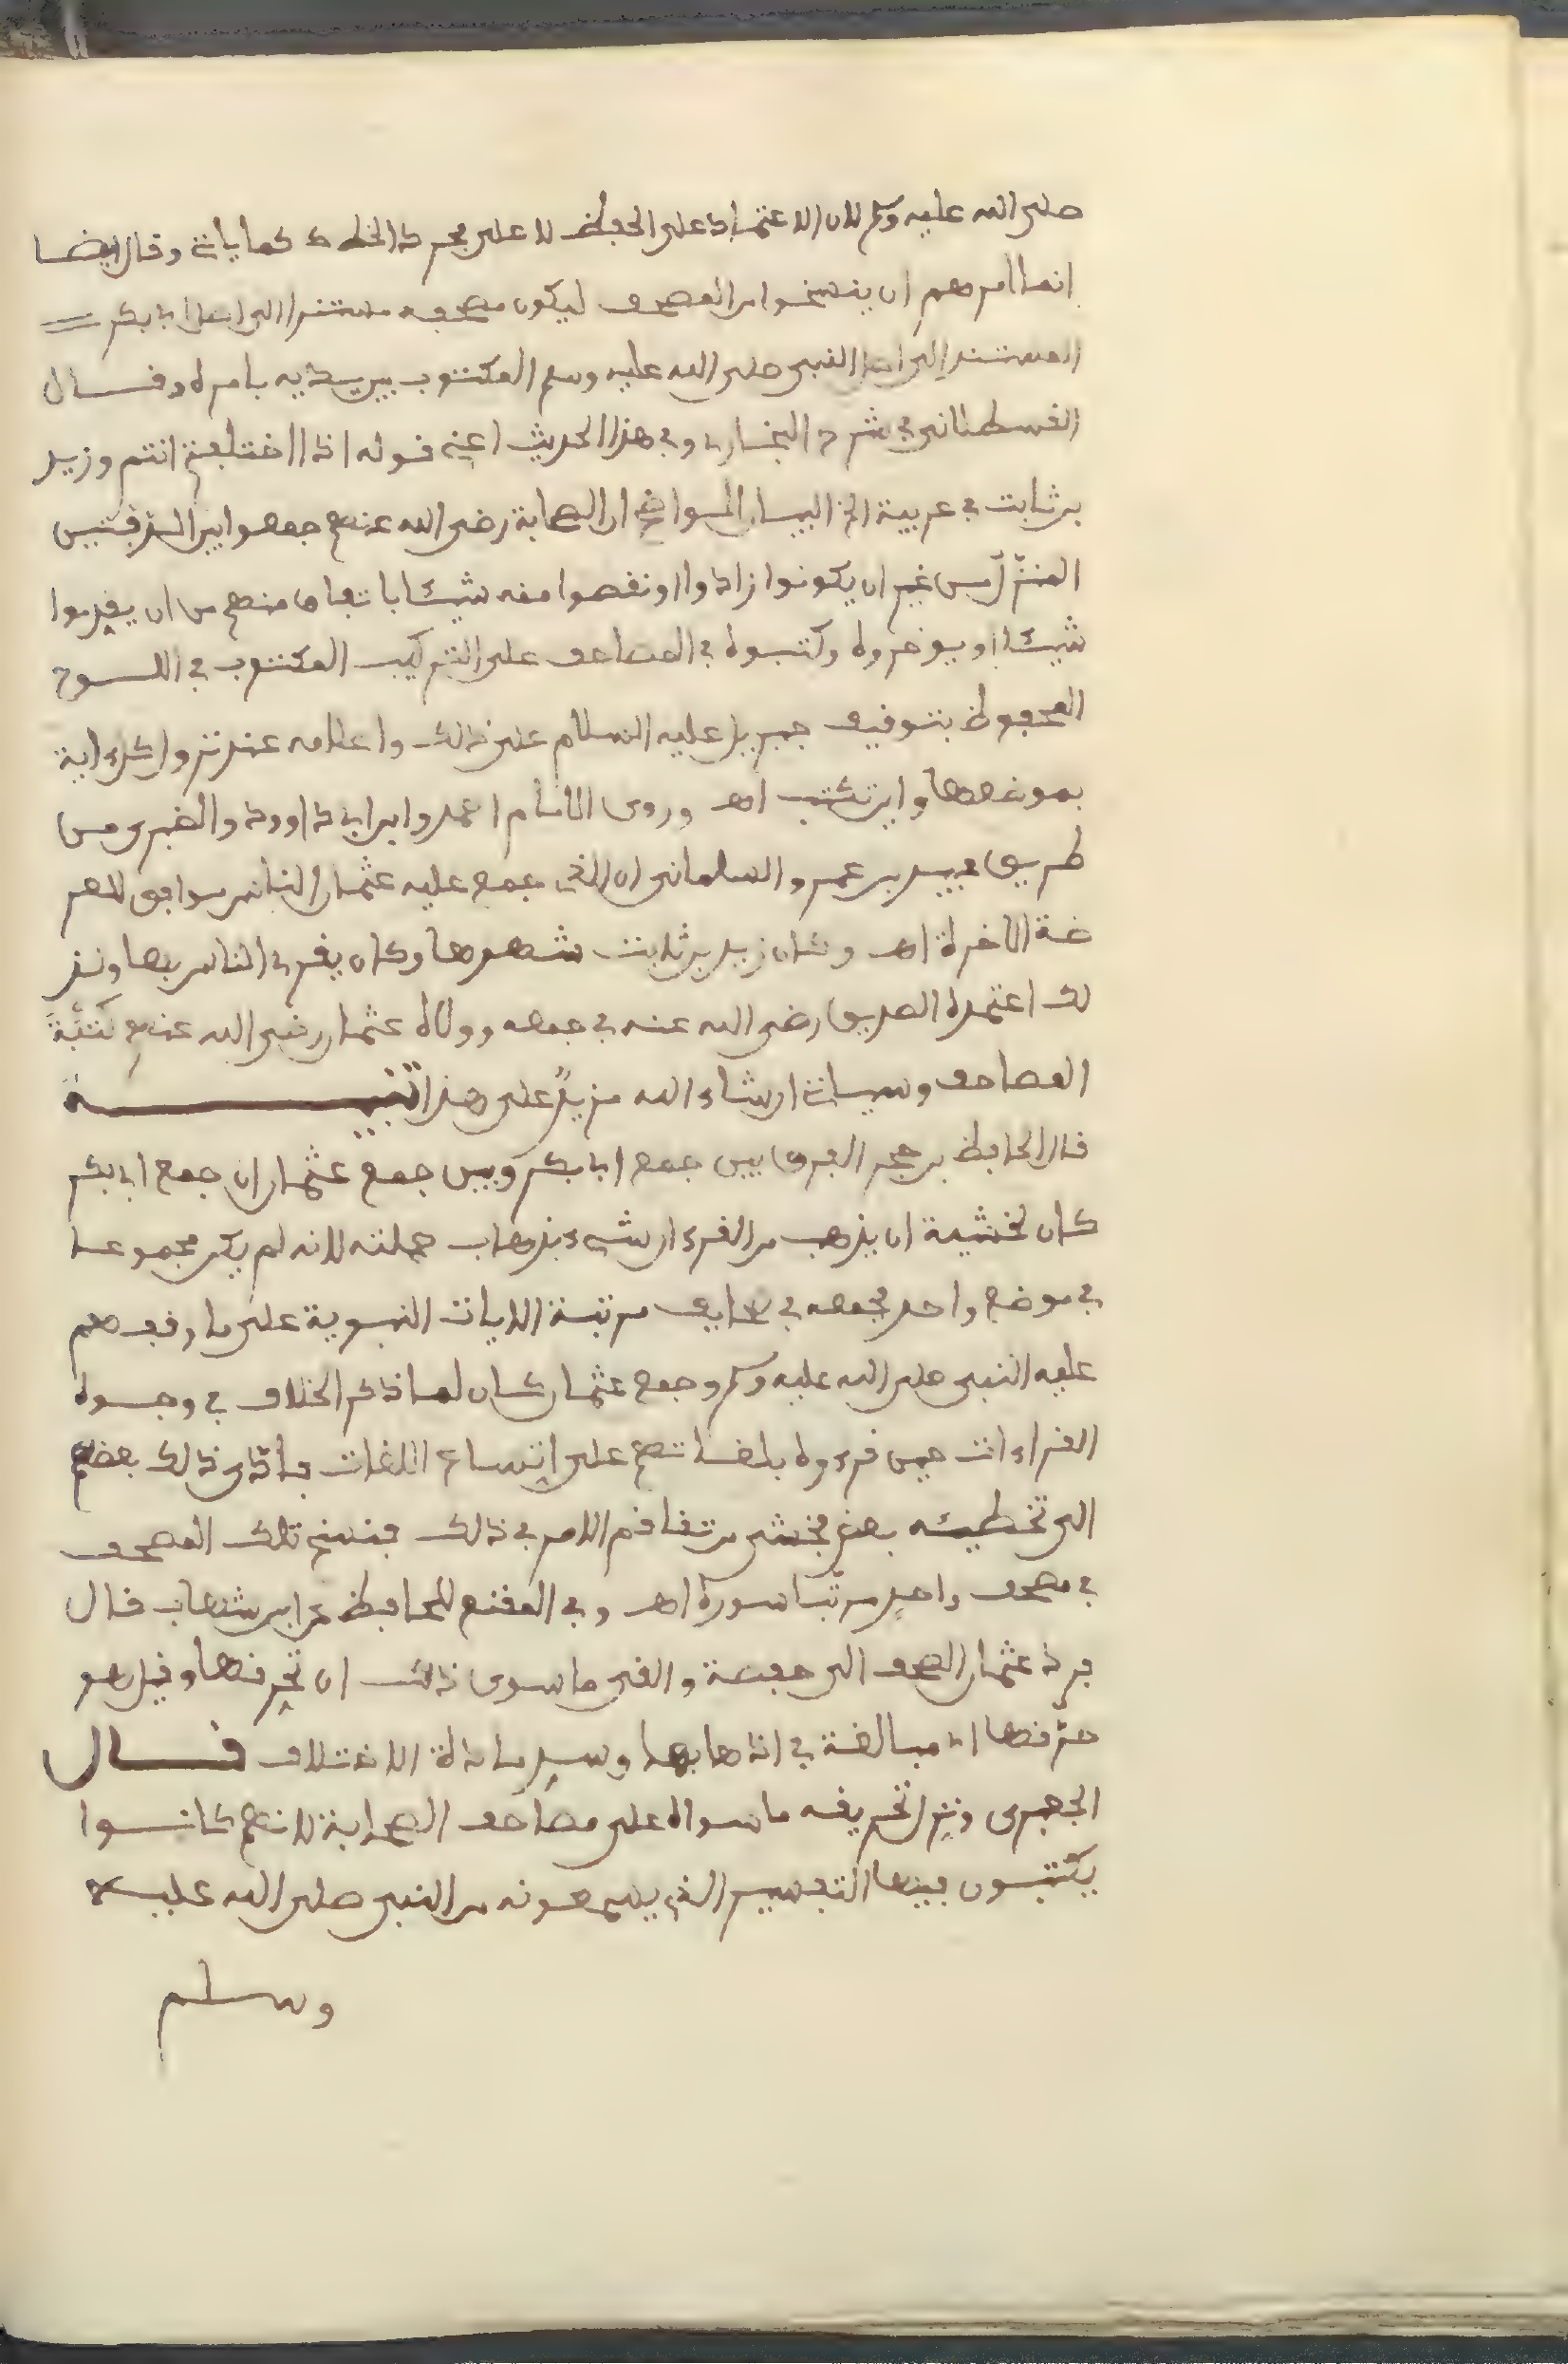 صلى الله عليه وسلم لان الاعتماد على الحفظ لا على مجرد الخط كما ياتي وقال ايضا
انما امرهم ان ينسخوا من المصحف ليكون مصحفه مستندا الى اصل ابي بكر
المستند الى اصل النبي صلى الله عليه وسلم المكتوب بين يديه بامره وقال
القسطلاني في شرح البخاري وفي هذا الحديث اعني قوله اذا اختلفتم انتم وزيد
بن ثابت في عربية الخ البيان الواضح ان الصحابة رضي الله عنهم جمعوا بين الدفتين
المنزّل من غير ان يكونوا زادوا او نقصوا منه شيئا باتفاق منهم من ان يقدموا
شيئا او يوخروه وكتبوه في المصاحف على التركيب المكتوب في اللوح
المحفوظ بتوقيف جبريل عليه السلام على ذالك واعلامه عند نزول كل ءاية
بموضعها واين تكتب اهـ وروى الامام احمد وابن ابي داوود والطبري من
طريق عبيد بن عمرو السلماني ان الذي جمع عليه عثمان الناس موافق للعر
ضة الاخرة اهـ وكان زيد بن ثابت شهدها وكان يقرئ الناس بها ولذ
لك اعتمده الصديق رضي الله عنه في جمعه وولاه عثمان رضي الله عنهم كَتَبَةَ
المصاحف وسياتي ان شاء الله مزيدٌ على هذا تنبيه
قال الحافظ بن حجر الفرق بين جمع ابي بكر وبين جمع عثمان ان جمع ابي بكر
كان لخشية ان يذهب من القرءان شيء بذهاب حملته لانه لم يكن مجموعا
في موضع واحد فجمعه في صحايف مرتبة الايات النبوية على ما وقفهم
عليه النبي صلى الله عليه وسلم وجمع عثمان كان لما ذكر الخلاف في وجوه
القراءات حين قرءوه بلغاتهم على اتساع اللغات فادى ذالك بعضهم
الى تخطيئه بعض فخشي من تفاقم الامر في ذالك فنسخ تلك الصحف
في مصحف واحد مرتّبا سوره اهـ وفي المقنع للحافظ عن ابن شهاب قال
فرد عثمان الصحف الى حفصة والقى ما سوى ذالك اي تحرفها وقيل هو
حرّفها اي مبالغة في اذهابها وسدِ مادة الاختلاف قال
الجعبري ونزل تحريفه ما سواه على مصاحف الصحابة لانهم كانوا
يكتبون فيها التفسير الذي يسمعونه من النبي صلى الله عليه
وسلم